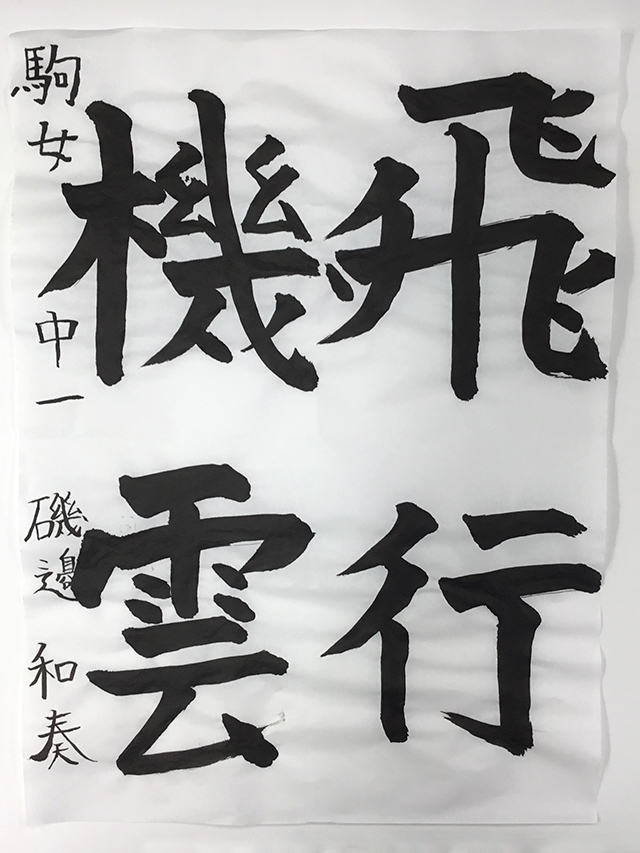 飛行
機雲
駒女 中一 磯邊 和奏